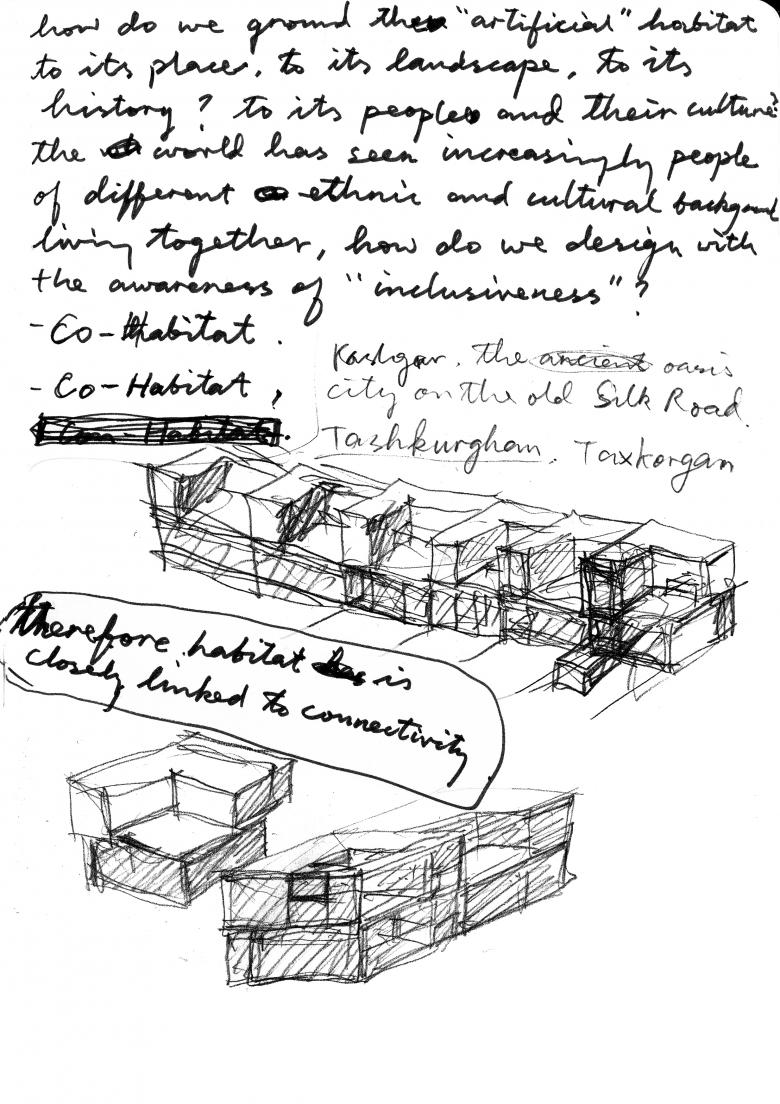 how do we ground the "artificial" habitat
to its place, to its landscape, to its
history? to its people and their culture?
the world has seen increasingly people
of different ethnic and cultural background
living together, how do we design with
the awareness of "inclusiveness"?
- Co-Habitat.
- Co-Habitat,
Con-Habitat.
Kashgar. the ancient oasis
city on the old Silk Road.
Tashkurghan. Taxkorgan
therefore habitat is
closely linked to connectivity